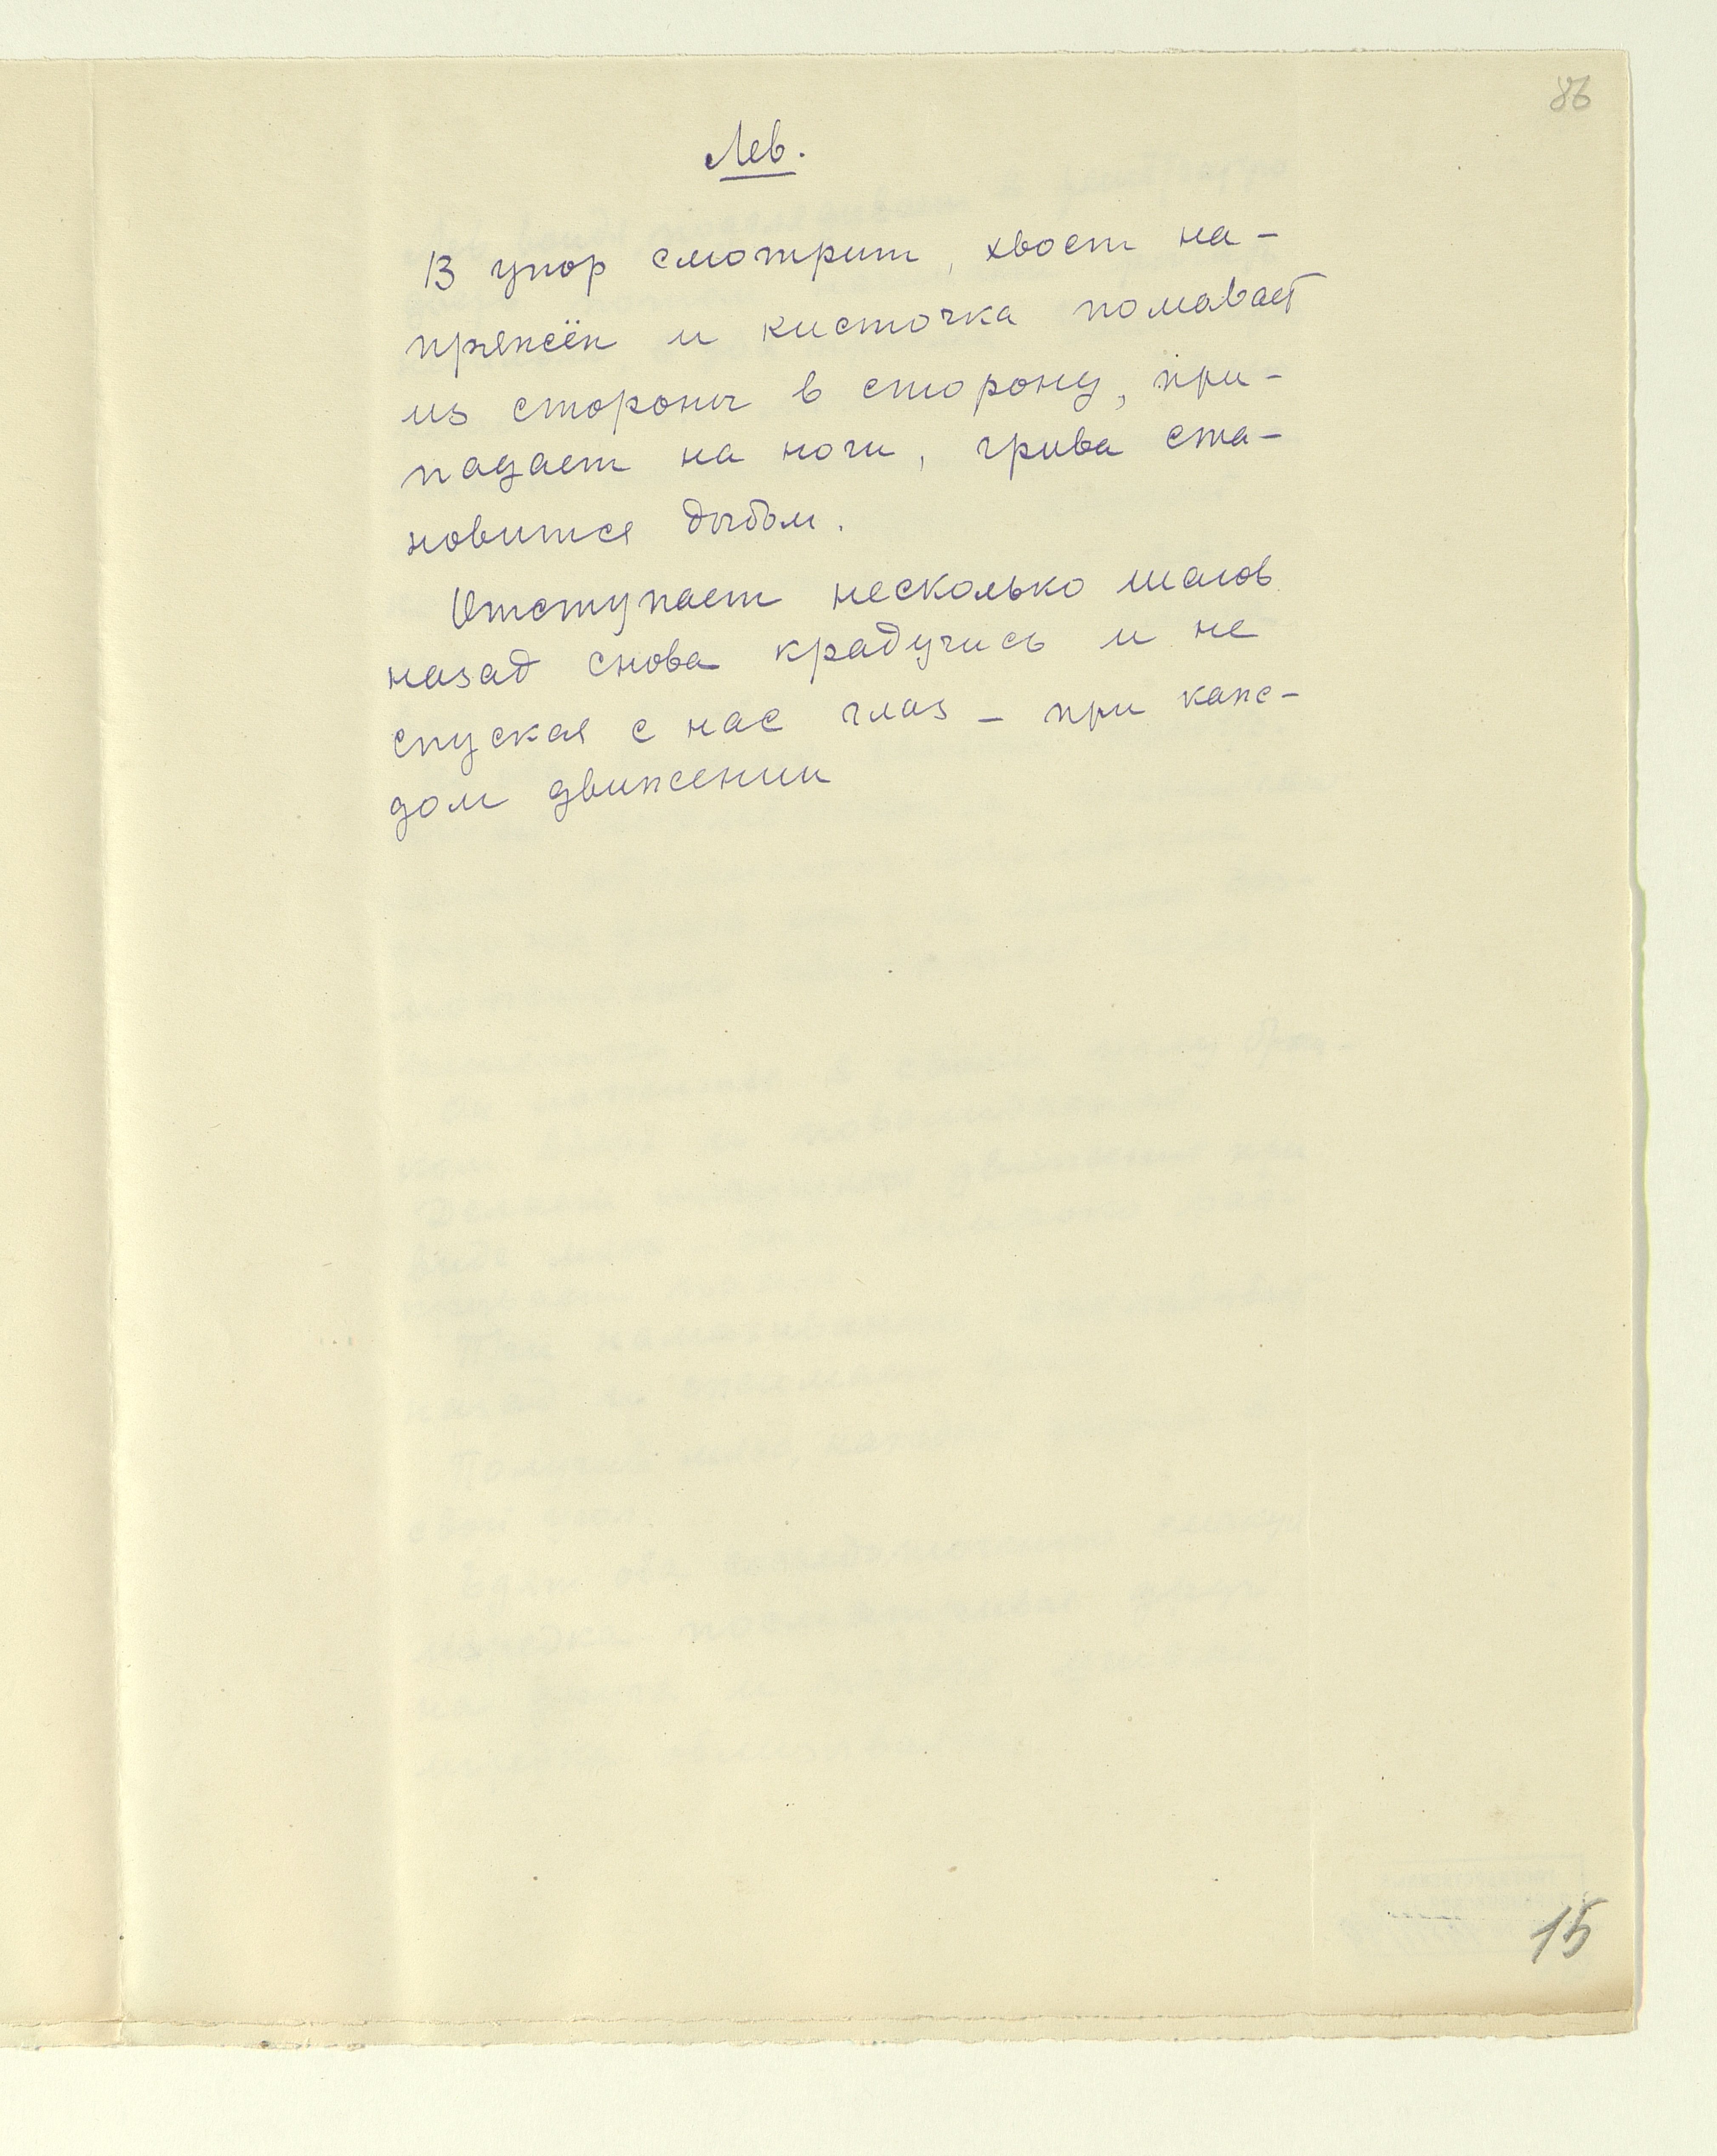 86
Лев.
В упор смотрит, хвост на-
пряжён и кисточка помавает
из стороны в сторону, при-
падает на ноги, грива ста-
новится дыбом.
Отступает несколько шагов
назад снова крадучись и не
спуская с нас глаз – при каж-
дом движении
15